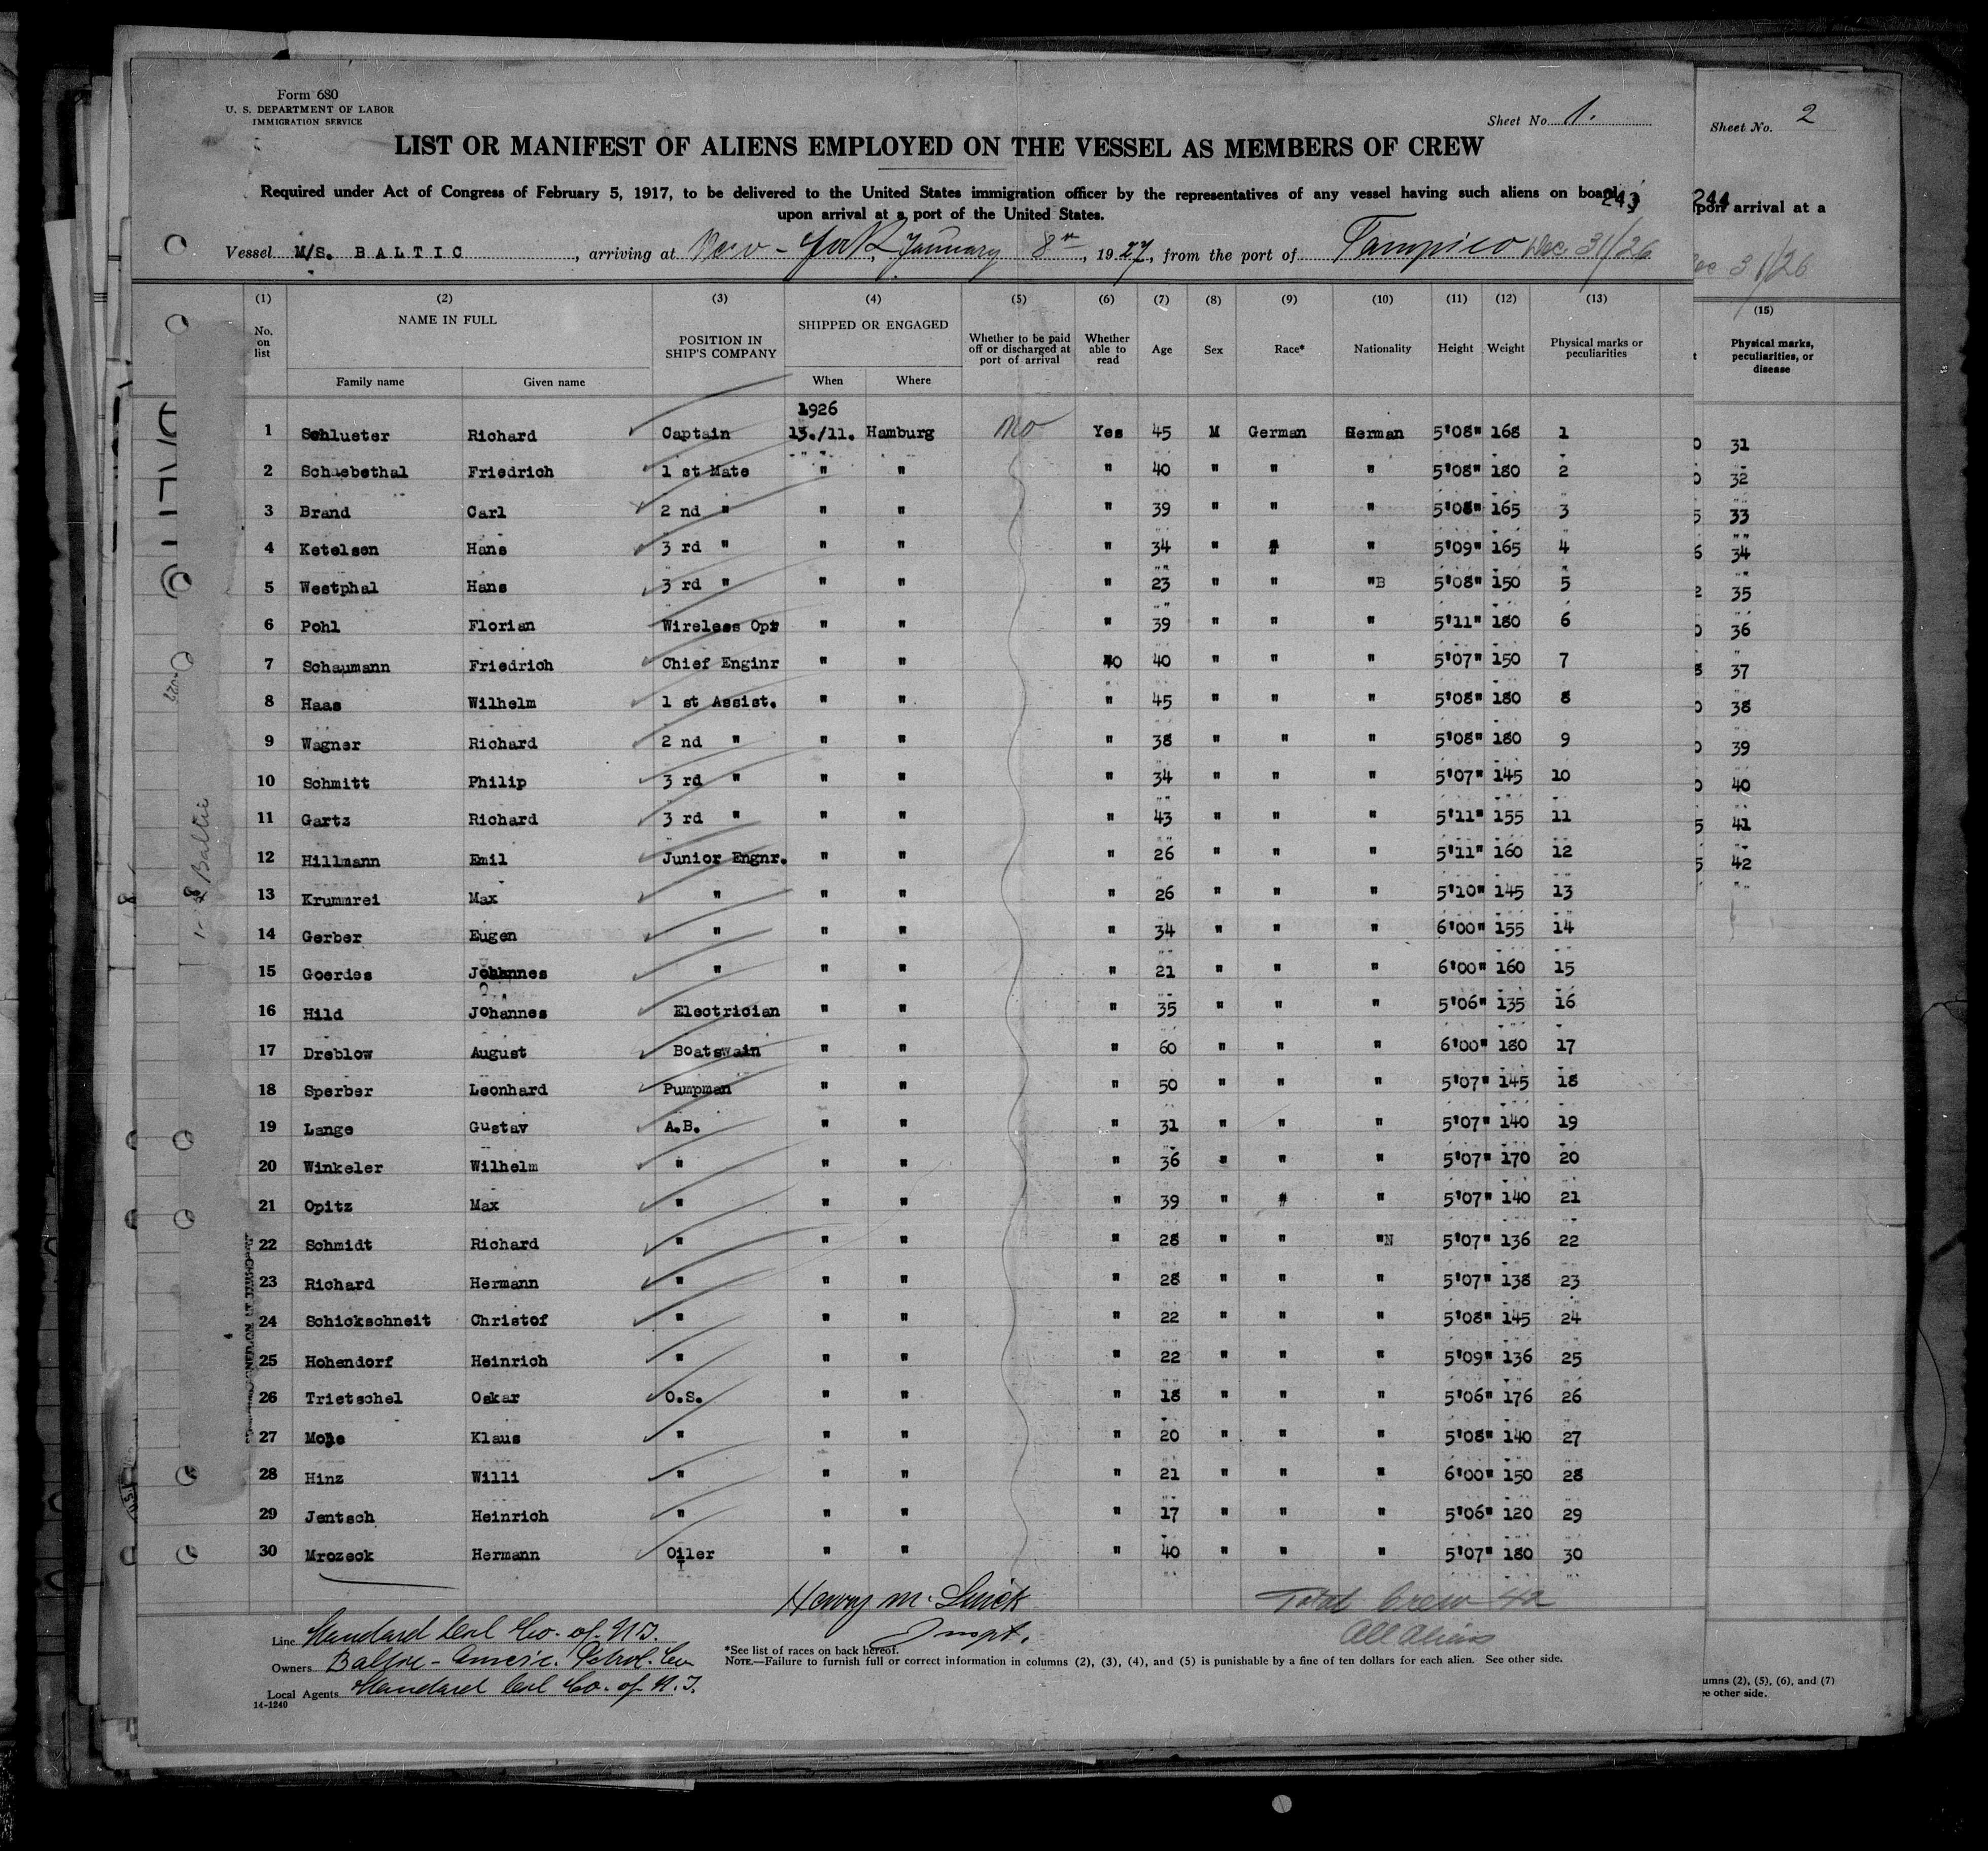 Form 680
U. S. DEPARTMENT OF LABOR
IMMIGRATION SERVICE
Sheet No. 1.
LIST OR MANIFEST OF ALIENS EMPLOYED ON THE VESSEL AS MEMBERS OF CREW
Required under Act of Congress of February 5, 1917, to be delivered to the United States immigration officer by the representatives of any vessel having such aliens on board
upon arrival at a port of the United States.
243
Vessel M/S. BALTIC, arriving at New-York, January 8th, 1927, from the port of Tampico Dec 31/26
(1) (2) (3) (4) (5) (6) (7) (8) (9) (10) (11) (12) (13)
No. on list NAME IN FULL POSITION IN SHIP'S COMPANY SHIPPED OR ENGAGED Whether to be paid off or discharged at port of arrival Whether able to read Age Sex Race* Nationality Height Weight Physical marks or peculiarities
Family name Given name When Where
1926
1 Schlueter Richard Captain 13./11. Hamburg No Yes 45 M German German 5'08" 168 1
2 Schuebethal Friedrich 1 st Mate " " " 40 " " " 5'08" 180 2
3 Brand Carl 2 nd " " " " 39 " " " 5'08" 165 3
4 Ketelsen Hans 3 rd " " " " 34 " " " 5'09" 165 4
5 Westphal Hans 3 rd " " " " 23 " " "B 5'08" 150 5
6 Pohl Florian Wireless Opr " " " 39 " " " 5'11" 180 6
7 Schaumann Friedrich Chief Enginr " " 40 40 " " " 5'07" 150 7
8 Haas Wilhelm 1 st Assist. " " " 45 " " " 5'08" 180 8
9 Wagner Richard 2 nd " " " " 38 " " " 5'08" 180 9
10 Schmitt Philip 3 rd " " " " 34 " " " 5'07" 145 10
11 Gartz Richard 3 rd " " " " 43 " " " 5'11" 155 11
12 Hillmann Emil Junior Engnr. " " " 26 " " " 5'11" 160 12
13 Krummrei Max " " " " 26 " " " 5'10" 145 13
14 Gerber Eugen " " " " 34 " " " 6'00" 155 14
15 Goerdes Johannes " " " " 21 " " " 6'00" 160 15
16 Hild Johannes Electrician " " " 35 " " " 5'06" 135 16
17 Dreblow August Boatswain " " " 60 " " " 6'00" 180 17
18 Sperber Leonhard Pumpman " " " 50 " " " 5'07" 145 18
19 Lange Gustav A.B. " " " 31 " " " 5'07" 140 19
20 Winkeler Wilhelm " " " " 36 " " " 5'07" 170 20
21 Opitz Max " " " " 39 " " " 5'07" 140 21
22 Schmidt Richard " " " " 28 " " "N 5'07" 136 22
23 Richard Hermann " " " " 28 " " " 5'07" 138 23
24 Schickschneit Christof " " " " 22 " " " 5'08" 145 24
25 Hohendorf Heinrich " " " " 22 " " " 5'09" 136 25
26 Trietschel Oskar O.S. " " " 18 " " " 5'06" 176 26
27 Klaus " " " " 20 " " " 5'08" 140 27
28 Hinz Willi " " " " 21 " " " 6'00" 150 28
29 Jentsch Heinrich " " " " 17 " " " 5'06" 120 29
30 Mrozeck Hermann Oiler " " " 40 " " " 5'07" 180 30
Total Crew 42
All Aliens
Line Standard Oil Co. of N.J.
Owners Petrol. Co.
Local Agents Standard Oil Co. of N.J.
14-1240
Henry M.
Inspt.
*See list of races on back hereof.
NOTE.—Failure to furnish full or correct information in columns (2), (3), (4), and (5) is punishable by a fine of ten dollars for each alien. See other side.
Baltic
Sheet No. 2
244
upon arrival at a
Dec 31/26
(15)
Physical marks, peculiarities, or disease
31
32
33
34
35
36
37
38
39
40
41
42
umns (2), (5), (6), and (7)
e other side.